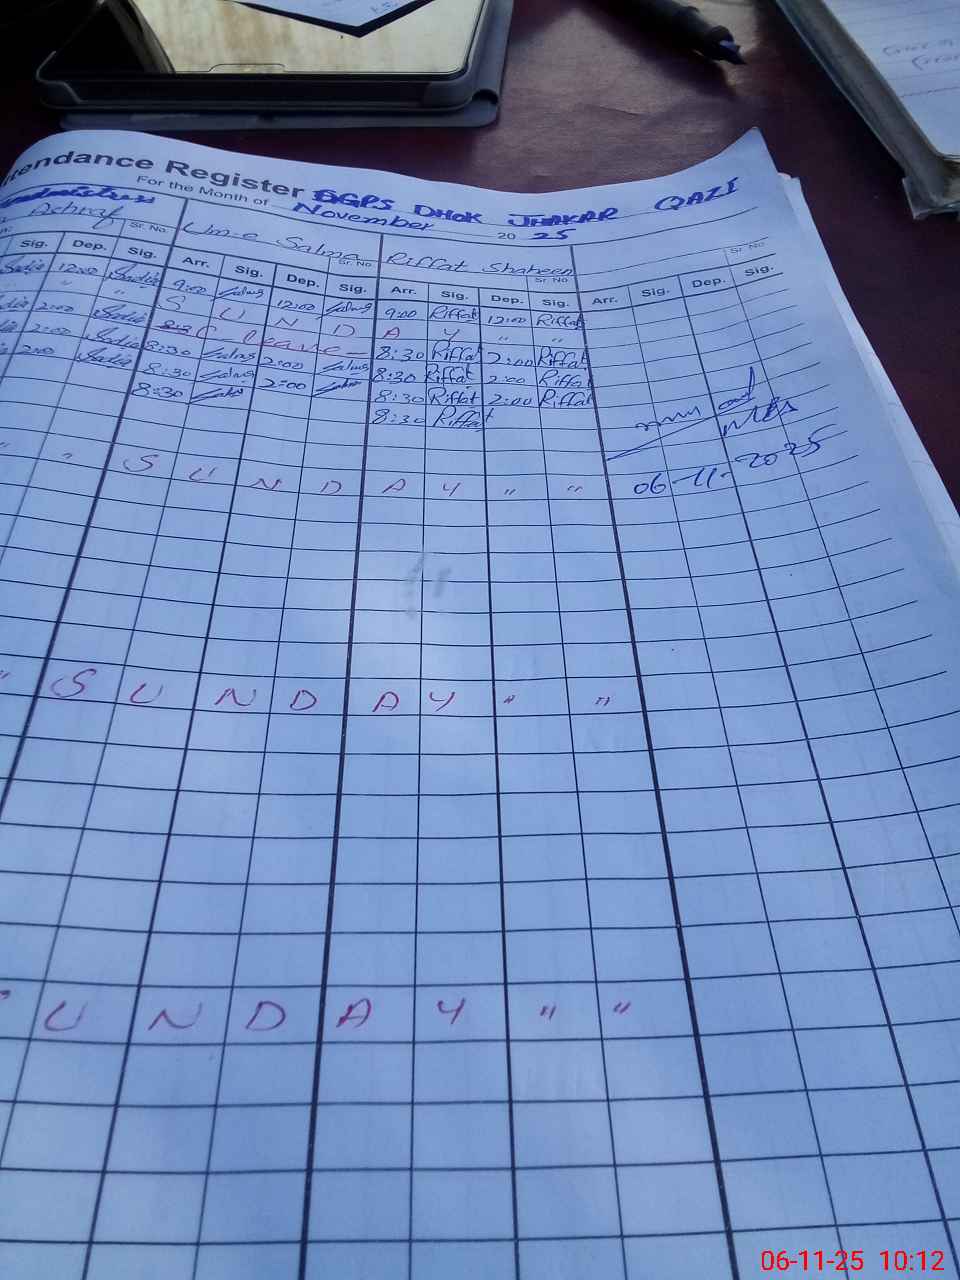 tendance Register GGPS DHOK JHAKAR QAZI
For the Month of November 2025
Ashraf Sr. No. Um-e Salma Sr. No. Riffat Shaheen Sr. No. Sr. No.
Sig. Dep. Sig. Arr. Sig. Dep. Sig. Arr. Sig. Dep. Sig. Arr. Sig. Dep. Sig.
Sadia 12:00 Sadia 9:00 Salma 12:00 Salma 9:00 Riffat 12:00 Riffat
" " S U N D A Y " "
2:00 Sadia C-leave- 8:30 Riffat 2:00 Riffat
2:00 Sadia 8:30 Salma 2:00 Salma 8:30 Riffat 2:00 Riffat
2:00 Sadia 8:30 Salma 2:00 Salma 8:30 Riffat 2:00 Riffat
8:30 Salma 8:30 Riffat
06-11-2025
" " S U N D A Y " "
" S U N D A Y " "
" U N D A Y " "
06-11-25 10:12